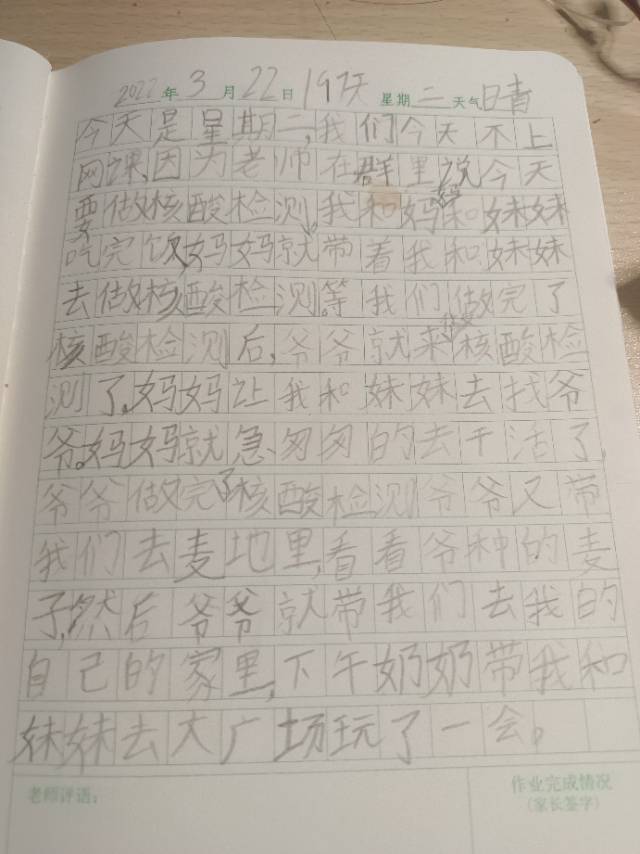 2022年3月22日197天 星期二 天气晴
今天是星期二,我们今天不上
网课,因为老师在群里说今天
要做核酸检测,我和妈妈和妹妹
吃完饭,妈妈就带着我和妹妹
去做核酸检测。等我们做完了
核酸检测后,爷爷就来做核酸检
测了,妈妈让我和妹妹去找爷
爷。妈妈就急匆匆的去干活了,
爷爷做完了核酸检测爷爷又带
我们去麦地里,看看爷种的麦
子,然后爷爷就带我们去我的
自己的家里,下午奶奶带我和
妹妹去大广场玩了一会。
老师评语:
作业完成情况
(家长签字)